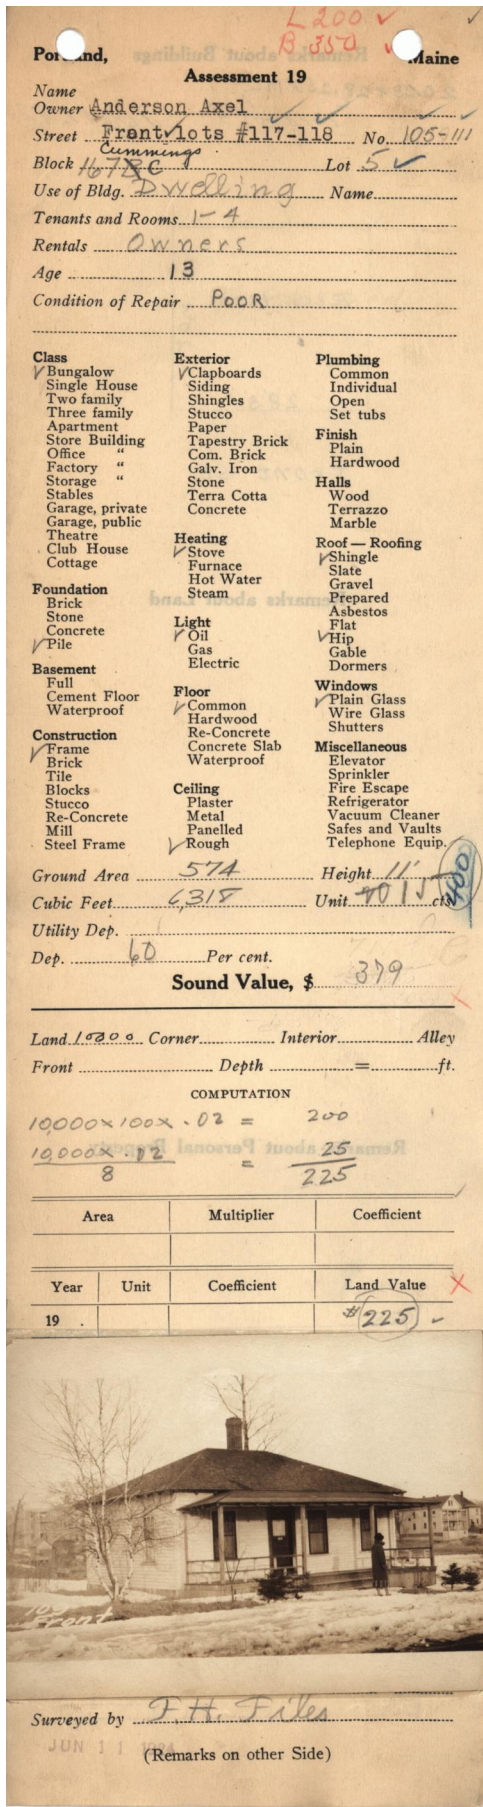 L 200 ✓
B 350 ✓
Portland, Maine
Assessment 19
Name
Owner Anderson Axel
Street Front lots #117-118 No. 105-111
Cummings
Block 167 C Lot 5
Use of Bldg. Dwelling Name
Tenants and Rooms 1-4
Rentals Owners
Age 13
Condition of Repair POOR
Class
✓ Bungalow
Single House
Two family
Three family
Apartment
Store Building
Office "
Factory "
Storage "
Stables
Garage, private
Garage, public
Theatre
Club House
Cottage
Foundation
Brick
Stone
Concrete
✓ Pile
Basement
Full
Cement Floor
Waterproof
Construction
✓ Frame
Brick
Tile
Blocks
Stucco
Re-Concrete
Mill
Steel Frame
Exterior
✓ Clapboards
Siding
Shingles
Stucco
Paper
Tapestry Brick
Com. Brick
Galv. Iron
Stone
Terra Cotta
Concrete
Heating
✓ Stove
Furnace
Hot Water
Steam
Light
✓ Oil
Gas
Electric
Floor
✓ Common
Hardwood
Re-Concrete
Concrete Slab
Waterproof
Ceiling
Plaster
Metal
Panelled
✓ Rough
Plumbing
Common
Individual
Open
Set tubs
Finish
Plain
Hardwood
Halls
Wood
Terrazzo
Marble
Roof — Roofing
✓ Shingle
Slate
Gravel
Prepared
Asbestos
Flat
✓ Hip
Gable
Dormers
Windows
✓ Plain Glass
Wire Glass
Shutters
Miscellaneous
Elevator
Sprinkler
Fire Escape
Refrigerator
Vacuum Cleaner
Safes and Vaults
Telephone Equip.
Ground Area 574 Height 11'
Cubic Feet 6,318 Unit 15 cts.
400
Utility Dep.
Dep. 60 Per cent.
Sound Value, $ 379
Land 10000 Corner Interior Alley
Front Depth = ft.
COMPUTATION
10,000 x 100 x .02 = 200
10,000 x .02 = 25
8 225
Area Multiplier Coefficient
Year Unit Coefficient Land Value
19 . $ 225
105
Front
Surveyed by F. H. Files
JUN 11
(Remarks on other Side)